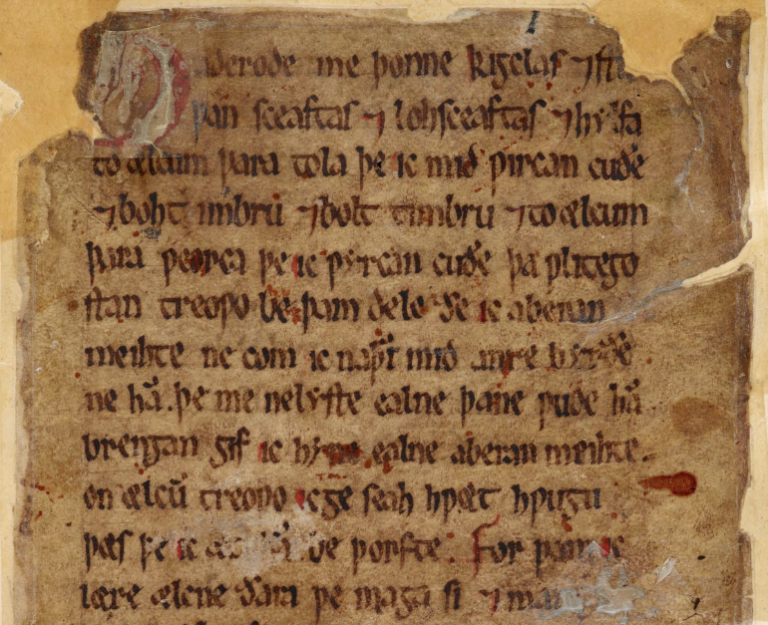 aderode me þonne kigclas ⁊ stu
þan sceaftas ⁊ lohsceaftas ⁊ hylfa
to ælcum þara tola þe ic mid ƿircan cuðe
⁊ boht imbrū ⁊ bolt timbrū ⁊ to ælcum
þara ƿeorca þe ic ƿyrcan cuðe þa ƿlitego
stan treoƿo be þam dele ðe ic aberan
meihte ne com ic naþer mid anre byrðene
ne hā. þe me ne lyste ealne þane ƿude hā
brengan gif ic hyne ealne aberan meihte.
on ælcū treoƿo ic ge seah hƿæt hƿugu
þæs þe ic æt hā be þorfte. For þam ic
lære ælcne ðara þe maga si ⁊